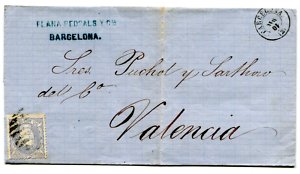 PLANA PEDRALS Y CA
BARCELONA.
BARCELONA
Sres. Puchol y Sarthou
del Co
Valencia